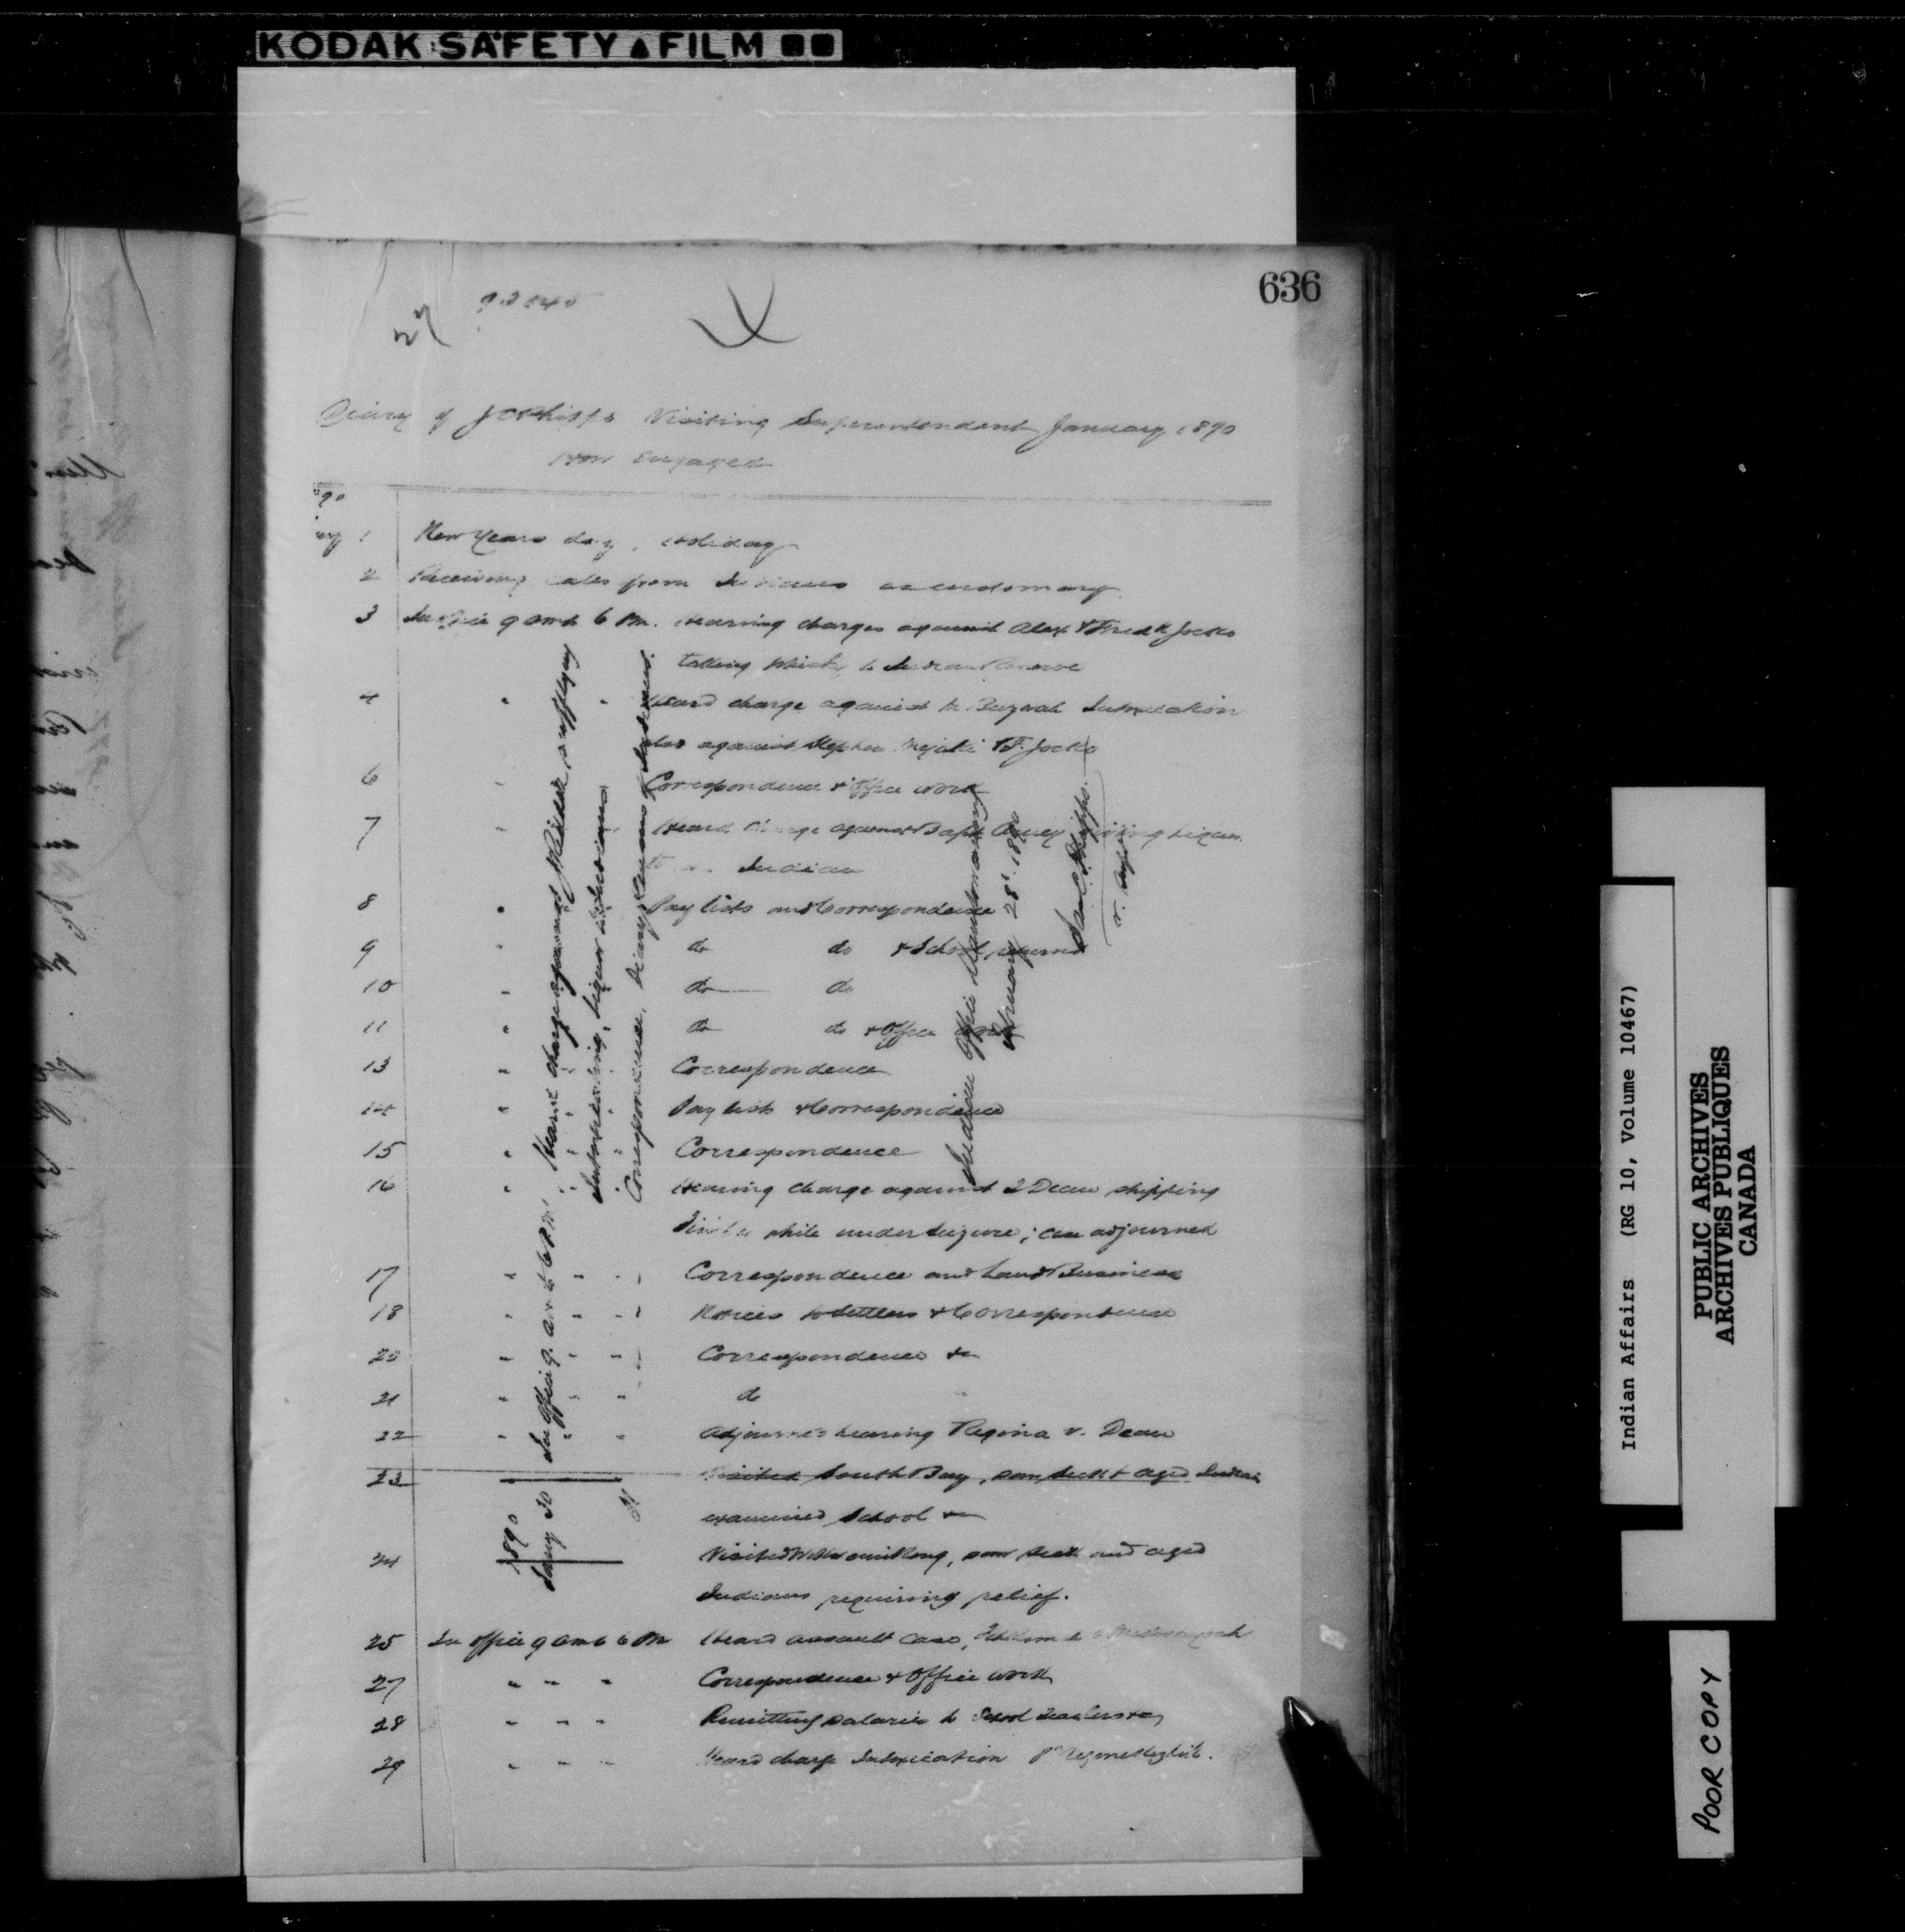 KODAK SAFETY FILM
636
27
Diary of J C Phipps Visiting Superintendent January 1890
How Engaged
90
1 New Years day. Holiday
2 Receiving calls from Indians as customary
3 In office 9 am to 6 Pm. Hearing charges against Alex & Fredk Jocko
taking Whisky to Indian Reserve
4 " " Heard charge against Buzwah Intoxication
also against Stephen & F. Jocko
6 " Correspondence & Office work
7 " Heard charge against Bapt giving Liquor
to Indian
8 " Pay lists and Correspondence
9 " do do & School returns
10 " do do
11 " do do & Office work
13 " Correspondence
14 " Pay lists & Correspondence
15 " Correspondence
16 " Hearing charge against Dean shipping
while under seizure; case adjourned
17 " " " Correspondence and Land Business
18 " " " Notices to Settlers & Correspondence
20 " " " Correspondence &c
21 " " " do
22 " " " Adjourned hearing Regina v. Dean
23 Visited South Bay, saw sick & aged Indians
examined School &c
24 Visited Wikwemikong, saw sick and aged
Indians requiring relief.
25 In office 9 am to 6 Pm Heard assault case,
27 " " " Correspondence & Office work
28 " " " Remitting salaries to School Teachers &c
29 " " " Heard charge Intoxication
1890
Jany 30 In Office 9. a.m to 6 P.M. Heard charge against supplying
Intoxicating Liquor to Indians
31 " " " Correspondence, Diary, Census of Indians.
Indian Office Manitowaning
February 28th. 1890
Jas C Phipps.
V. Supt
Indian Affairs (RG 10, Volume 10467)
PUBLIC ARCHIVES
ARCHIVES PUBLIQUES
CANADA
POOR COPY